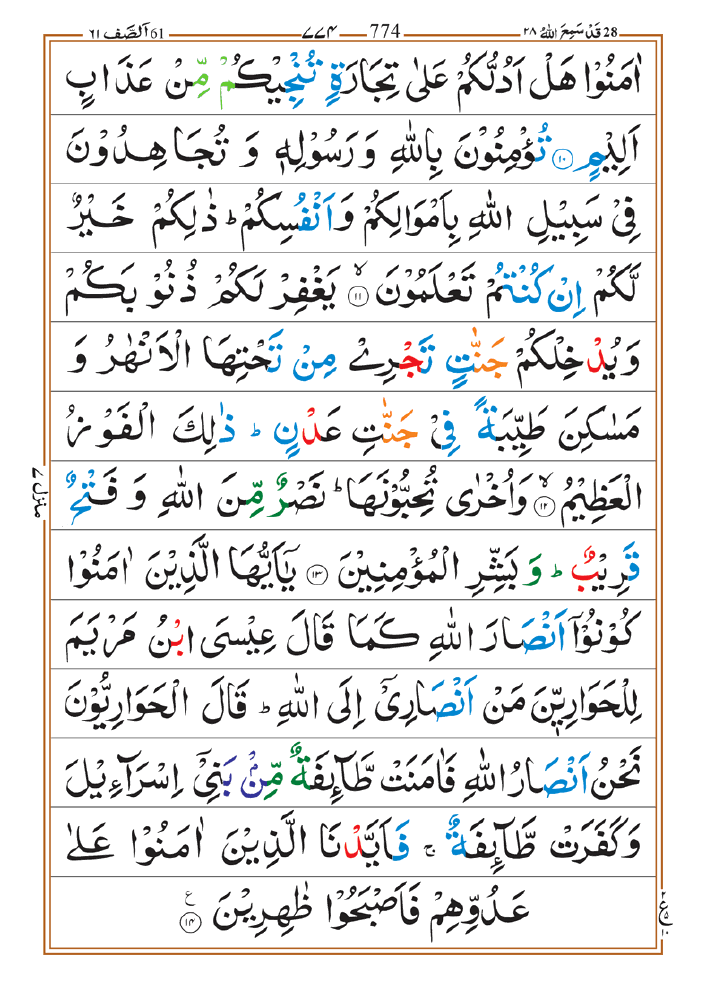 28 قَدْ سَمِعَ اللهُ ۲۸ 774 ۷۷۴ 61 اَلصَّف ۶۱
اٰمَنُوْا هَلْ اَدُلُّكُمْ عَلٰى تِجَارَةٍ تُنْجِيْكُمْ مِّنْ عَذَابٍ
اَلِيْمٍ ﴿۱۰﴾ تُؤْمِنُوْنَ بِاللّٰهِ وَرَسُوْلِهٖ وَ تُجَاهِدُوْنَ
فِىْ سَبِيْلِ اللّٰهِ بِاَمْوَالِكُمْ وَاَنْفُسِكُمْ ؕ ذٰلِكُمْ خَيْرٌ
لَّكُمْ اِنْ كُنْتُمْ تَعْلَمُوْنَ ۙ﴿۱۱﴾ يَغْفِرْ لَكُمْ ذُنُوْبَكُمْ
وَيُدْخِلْكُمْ جَنّٰتٍ تَجْرِىْ مِنْ تَحْتِهَا الْاَنْهٰرُ وَ
مَسٰكِنَ طَيِّبَةً فِىْ جَنّٰتِ عَدْنٍ ؕ ذٰلِكَ الْفَوْزُ
الْعَظِيْمُ ۙ﴿۱۲﴾ وَاُخْرٰى تُحِبُّوْنَهَا ؕ نَصْرٌ مِّنَ اللّٰهِ وَ فَتْحٌ
قَرِيْبٌ ؕ وَ بَشِّرِ الْمُؤْمِنِيْنَ ﴿۱۳﴾ يٰۤاَيُّهَا الَّذِيْنَ اٰمَنُوْا
كُوْنُوْۤا اَنْصَارَ اللّٰهِ كَمَا قَالَ عِيْسَى ابْنُ مَرْيَمَ
لِلْحَوَارِيّٖنَ مَنْ اَنْصَارِىْۤ اِلَى اللّٰهِ ؕ قَالَ الْحَوَارِيُّوْنَ
نَحْنُ اَنْصَارُ اللّٰهِ فَاٰمَنَتْ طَّآئِفَةٌ مِّنْۢ بَنِىْۤ اِسْرَآءِيْلَ
وَكَفَرَتْ طَّآئِفَةٌ ۚ فَاَيَّدْنَا الَّذِيْنَ اٰمَنُوْا عَلٰى
عَدُوِّهِمْ فَاَصْبَحُوْا ظٰهِرِيْنَ ﴿۱۴﴾ ع
منزل ۷